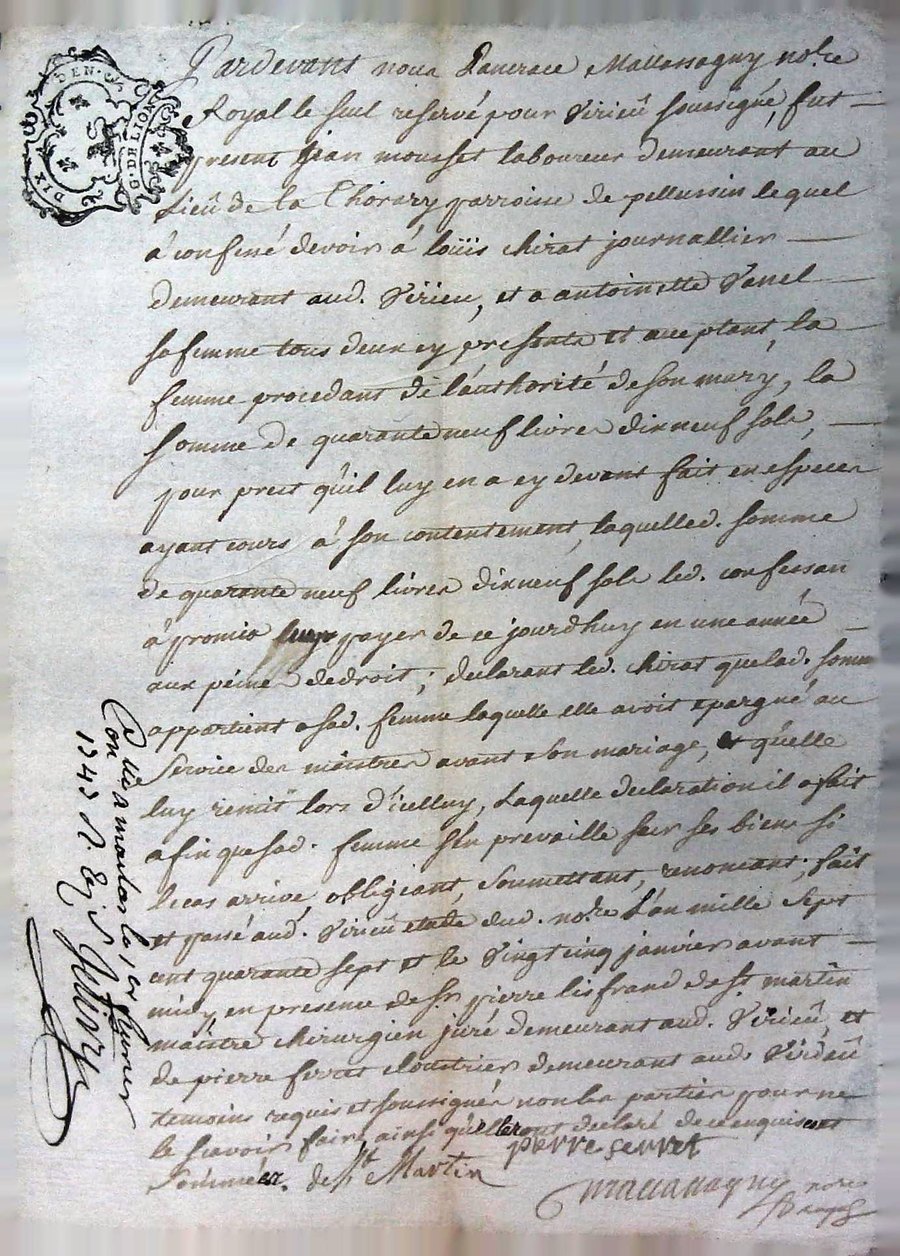 DIX DEN.
G. DE LION
Pardevant nous Pancrace Mallassagny no.re
Royal le seul reservé pour Virieu soussigné, fut
present Jean mousset laboureur demeurant au
Lieu de la Chorary parroisse de pellussin lequel
à confessé devoir à loüis chirat journallier
demeurant aud. Virieu, et a antoinette Vanel
sa femme tous deux cy presents et acceptant, la
femme procedant de l'authorité de son mary, la
somme de quarante neuf livres dix neuf sols,
pour prest qu'il luy en a cy devant fait en especes
ayant cours à son contentement, laquelled. somme
de quarante neuf livres dix neuf sols led. confessan
à promis payer de ce jourdhuy en une année
aux peines de droit; declarant led. chirat que lad. somm
appartient a sad. femme laquelle elle avoit epargné au
service des maitres avant son mariage, et qu'elle
luy remit lors d'icelluy, Laquelle declaration il a fait
afin que sad. femme s'en prevaille sur ses biens si
le cas arrive, obligeant, soumettant, renonceant; fait
et passé aud. Virieu etude dud. no.re L'an mille sept
cent quarante sept et le Vingt cinq janvier avant
midy en presence de Sr. pierre lisfrand de St martin
maistre chirurgien juré demeurant aud. Virieu, et
de pierre ferret cloutrier demeurant aud. Virieu
temoins requis et soussignés non les parties pour ne
le scavoir faire ainsi qu'elles ont declaré de ce enquises et
sommées. de St Martin
pierre serret
mallassagny no.re
Royal
Con.lé a la 1.er
1747 R.